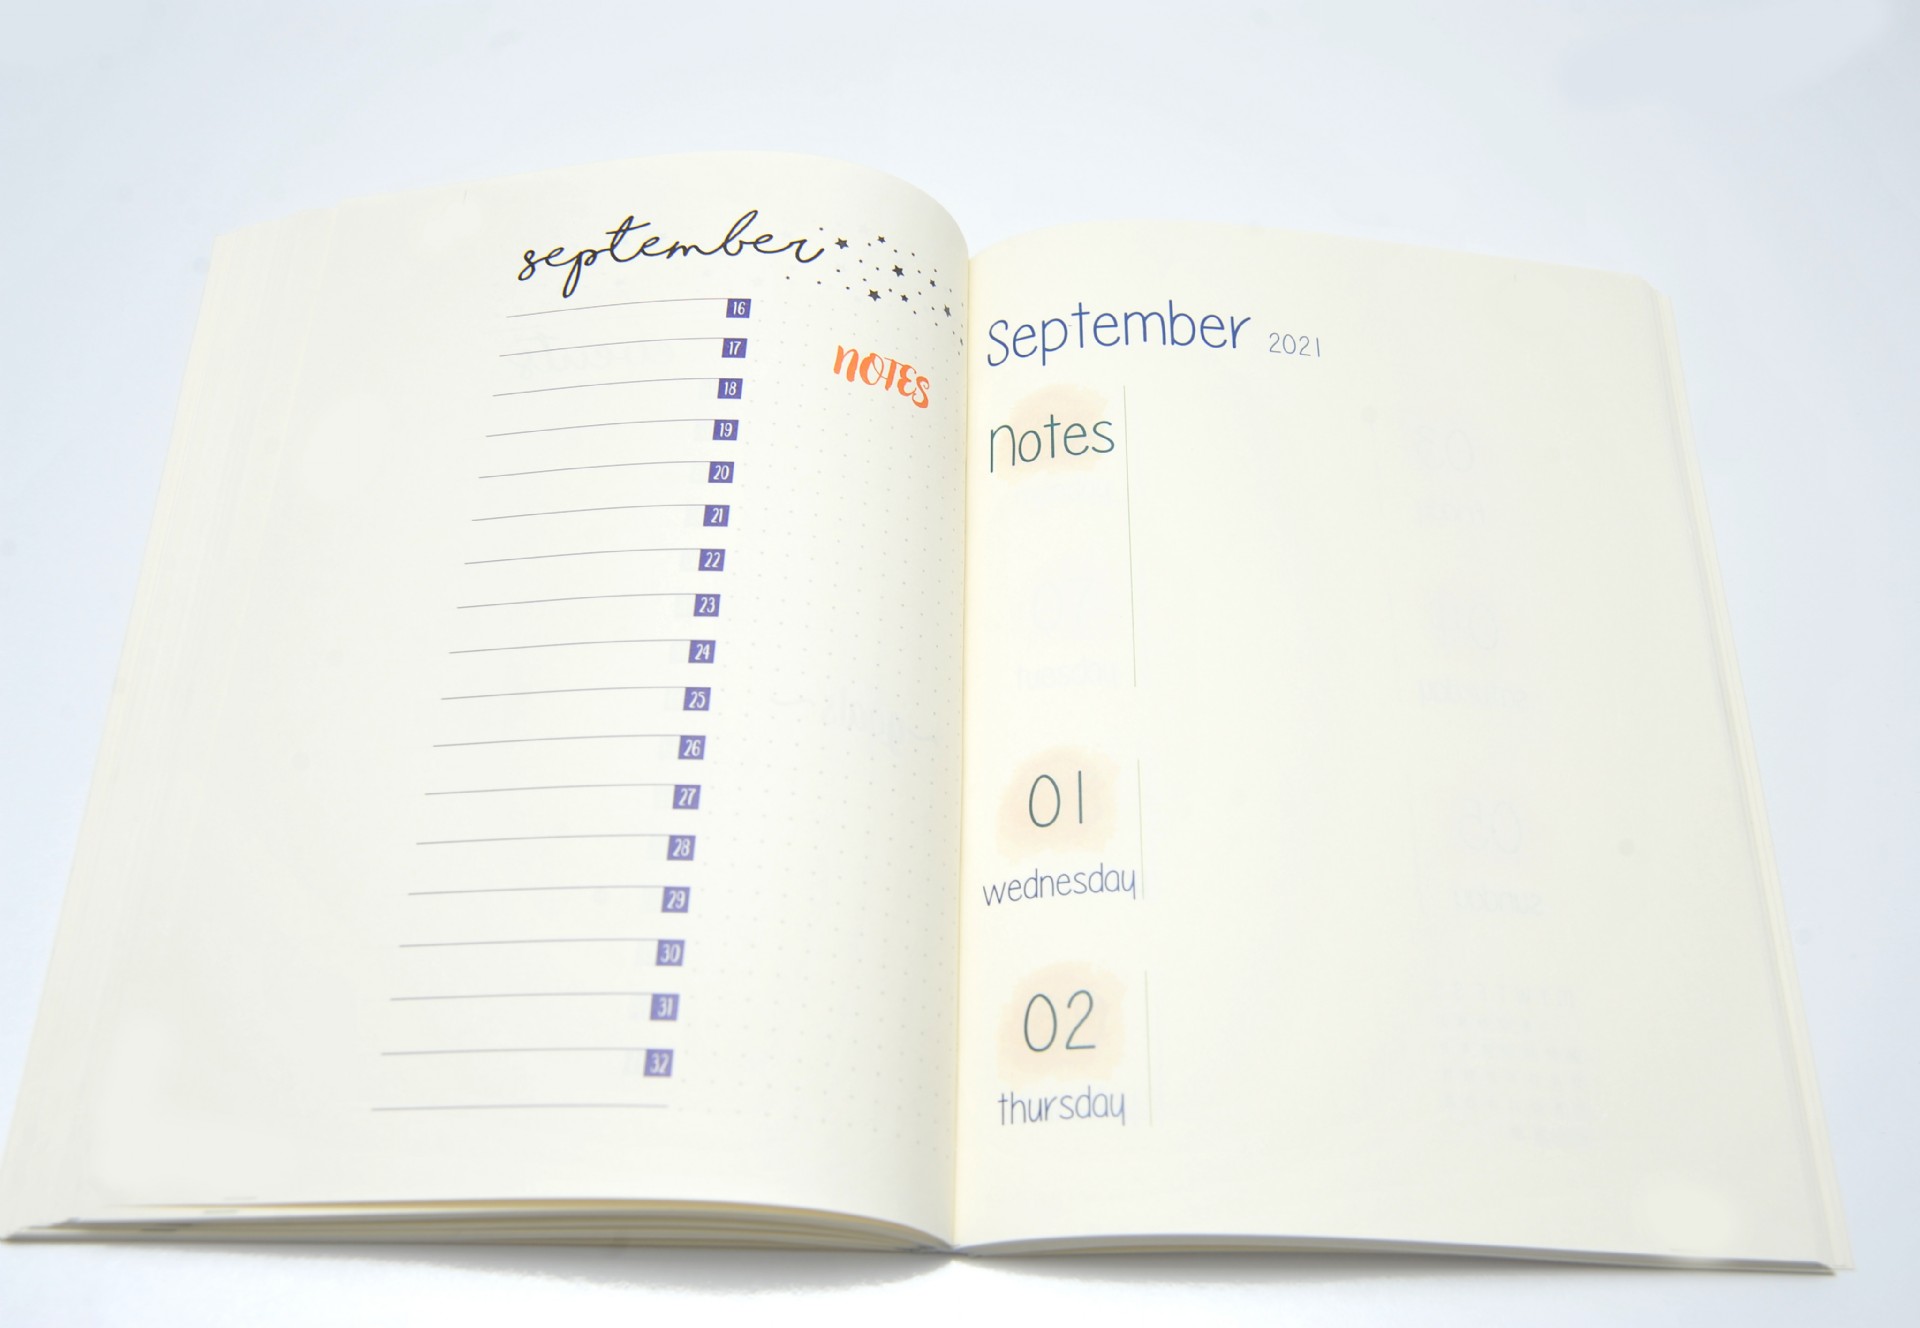 september
16
17
NOTES
18
19
20
21
22
23
24
25
26
27
28
29
30
31
32
September 2021
notes
01
wednesday
02
thursday